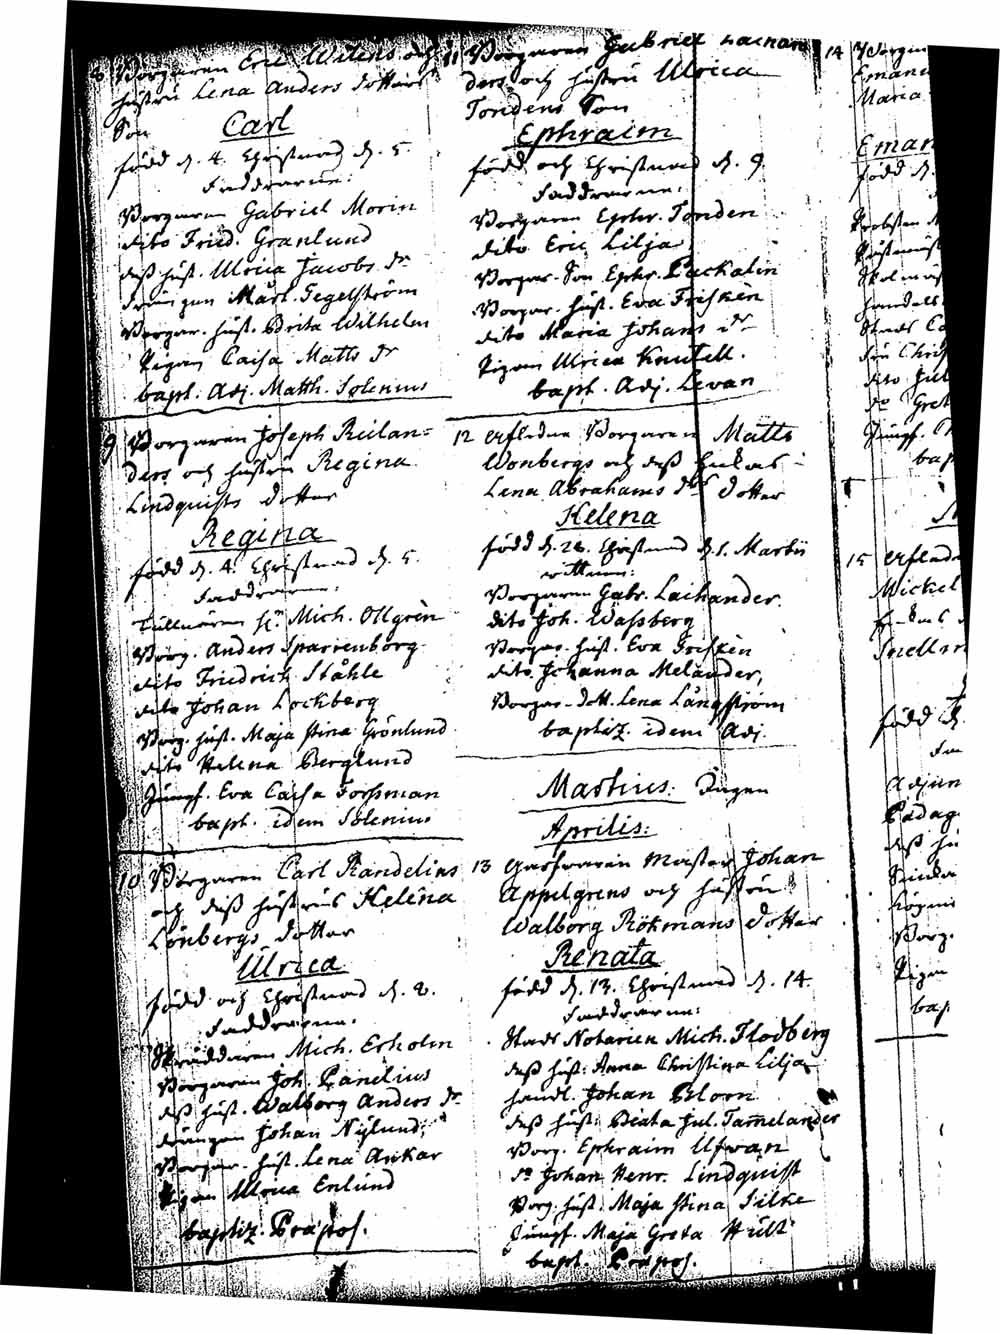 8 Borgaren Eric Wilens och
hustru Lena Anders dotters
Son
Carl
född d. 4. Christnad d. 5.
Faddrarne:
Borgaren Gabriel Morin
dito Fried. Granlund
dess hust. Ulrica Jacobs dr
drängen Mårt. Segelström
Borgar. hust. Brita Wilhelm
Pigan Caisa Matts dr
bapt. Adj. Matth. Solenius
9 Borgaren Joseph Rulan=
ders och hustru Regina
Lindquists dotter
Regina
född d. 4. Christnad d. 5.
Faddrarne:
Mich. Ollgrèn
Borg. Anders Sparrenborg
dito Friedrich Ståhle
dito Johan Lochberg
Borg. hust. Maja Stina Grönlund
dito Helena Berglund
Jumpf. Eva Caisa Forssman
bapt. idem Solenius
10 Borgaren Carl Randelins
och dess hustrus Helena
Lönbergs dotter
Ulrica
född och Christnad d. 8.
Faddrarne:
Skräddaren Mich. Erholm
Borgaren Joh. Panelius
dess hust. Walborg Anders dr
drängen Johan Nylund
Borgar. hust. Lena Ankar
Pigan Ulrica Enlund
baptiz. Præpos.
11 Borgaren Gabriel Lachan
ders och hustru Ulrica
Tordens Son
Ephraim
född och Christnad d. 9
Faddrarne:
Borgaren Ephr. Torden
dito Eric Lilja
Borgar. Son Ephr. Packalin
Borgar. hust. Eva Friskèn
dito Maria Johans dr
Pigan Ulrica Knutell.
bapt. Adj. Levan
12 Afledne Borgaren Matts
Wonbergs och dess Enkas
Lena Abrahams drs dotter
Helena
född d. 28. Christnad d. 1. Martii
wittnen:
Borgaren Gabr. Lachander
dito Joh. Wassberg
Borgar. hust. Eva Friskèn
dito Johanna Melander,
Borgar. dott. Lena Långström
baptiz. idem Adj.
Martius: Ingen
Aprilis:
13 Garfvaren Mäster Johan
Appelgrens och hustru
Walborg Rökmans dotter
Renata
född d. 13. Christnad d. 14.
Faddrarne:
Stads Notarien Mich. Flodberg
dess hust: Anna Christina Lilja
handl. Johan Blom
dess hust: Beata Jul. Tam̄elander
Borg. Ephraim Ulfwan
do Johan Henr. Lindquist
Borg. hust. Maja Stina Silke
Jumpf. Maja Greta Hult
bapt. Præpos.
14 Borgar
Emanu
Maria
Eman
född d.
Probsten
handel
Stads
dito Jul
do Gret
Jumpf.
bap
15 Afledn
Mickel
Enkas
Snellm
född d.
Fa
Adjun
Pædag
dess hu
Borg.
Pigan
bap